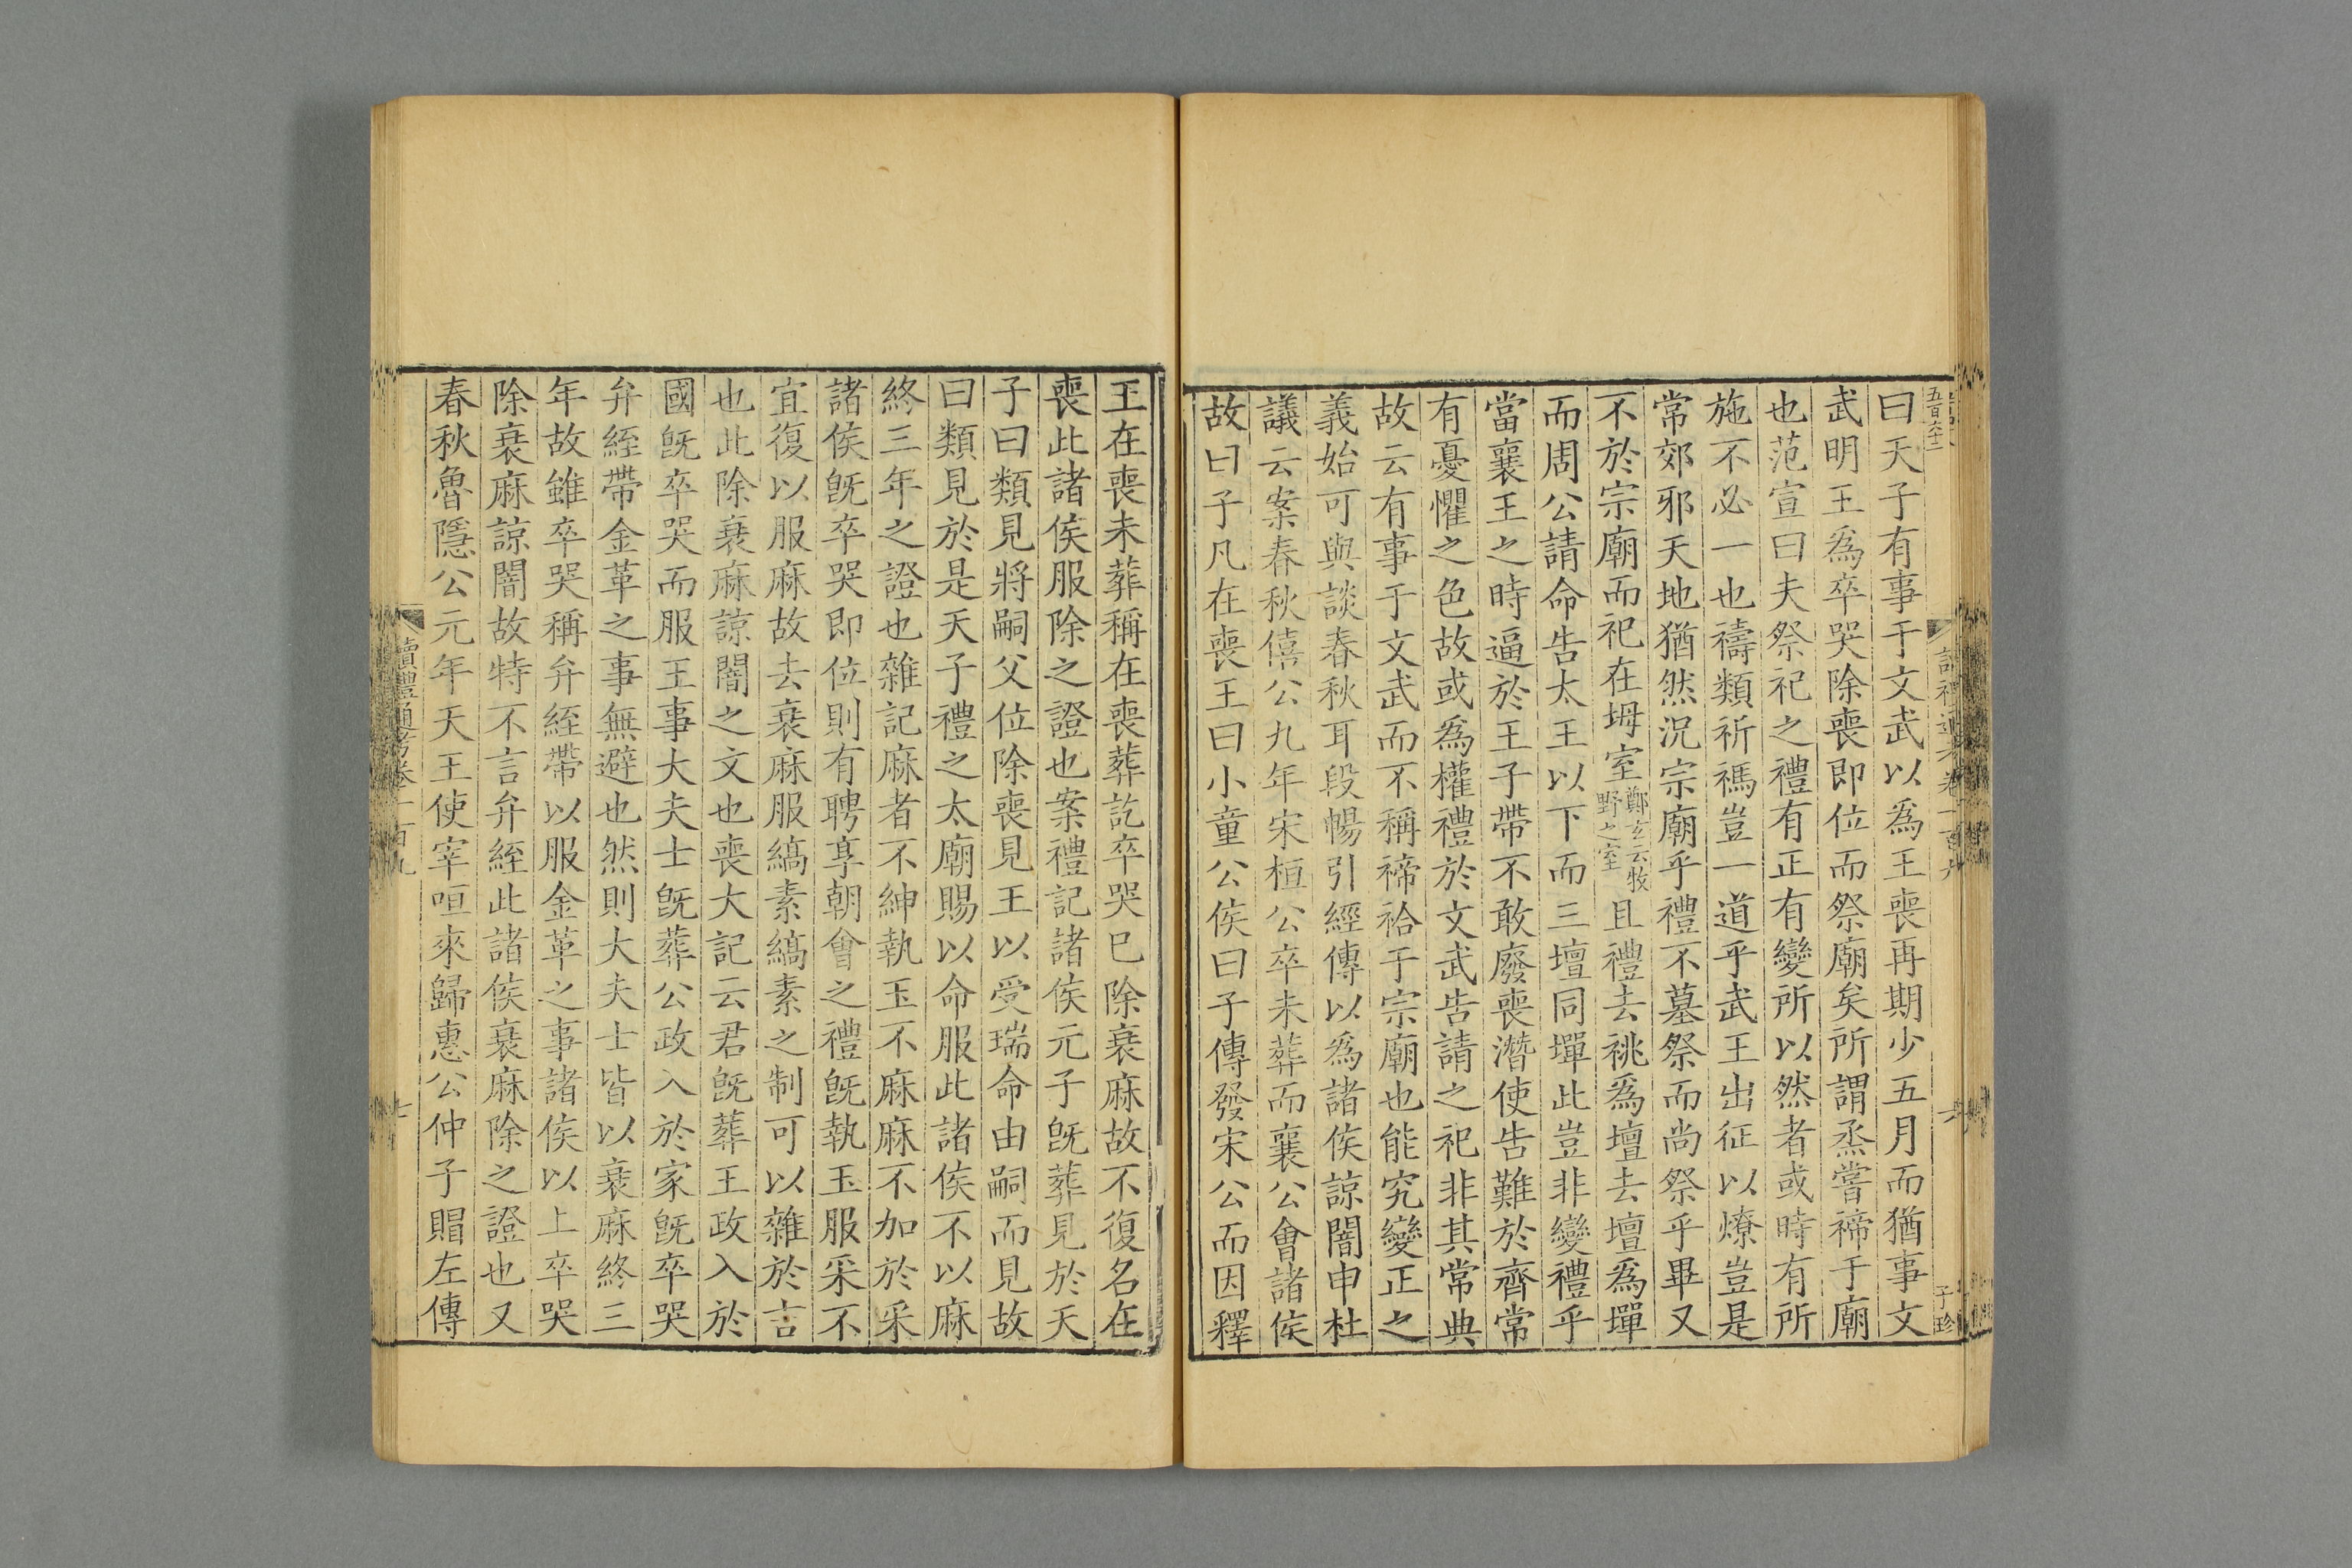 曰天子有事于文武以爲王喪再期少五月而猶事文
武明王爲卒哭除喪即位而祭廟矣所謂烝嘗禘于廟
也范宣曰夫祭祀之禮有正有變所以然者或時有所
施不必一也禱類祈禡豈一道乎武王出征以燎豈是
常郊邪天地猶然況宗廟乎禮不墓祭而尚祭乎畢又
不於宗廟而祀在坶室鄭玄云牧野之室且禮去祧爲壇去壇爲墠
而周公請命告太王以下而三壇同墠此豈非變禮乎
當襄王之時逼於王子帶不敢廢喪潛使告難於齊常
有憂懼之色故或爲權禮於文武告請之祀非其常典
故云有事于文武而不稱禘祫于宗廟也能究變正之
義始可與談春秋耳段暢引經傳以爲諸侯諒闇申杜
議云案春秋僖公九年宋桓公卒未葬而襄公會諸侯
故曰子凡在喪王曰小童公侯曰子傳發宋公而因釋
五百六十二
子珍
王在喪未葬稱在喪葬訖卒哭已除衰麻故不復名在
喪此諸侯服除之證也案禮記諸侯元子旣葬見於天
子曰類見將嗣父位除喪見王以受瑞命由嗣而見故
曰類見於是天子禮之太廟賜以命服此諸侯不以麻
終三年之證也雜記麻者不紳執玉不麻麻不加於采
諸侯旣卒哭即位則有聘享朝會之禮旣執玉服采不
宜復以服麻故去衰麻服縞素縞素之制可以雜於吉
也此除衰麻諒闇之文也喪大記云君旣葬王政入於
國旣卒哭而服王事大夫士旣葬公政入於家旣卒哭
弁絰帶金革之事無避也然則大夫士皆以衰麻終三
年故雖卒哭稱弁絰帶以服金革之事諸侯以上卒哭
除衰麻諒闇故特不言弁絰此諸侯衰麻除之證也又
春秋魯隱公元年天王使宰咺來歸惠公仲子賵左傳
讀禮通考卷一百九
七